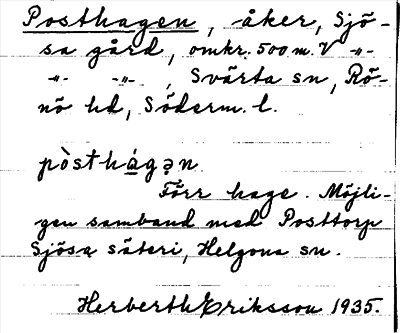 Posthagen, åker, Sjö-
sa gård, omkr. 500 m. V -"-
-"- -"-, Svärta sn, Rö-
nö hd, Söderm. l.
pòsthágən
Förr hage. Möjli-
gen samband med Posttorp
Sjösa säteri, Helgona sn.
Herberth Eriksson 1935.